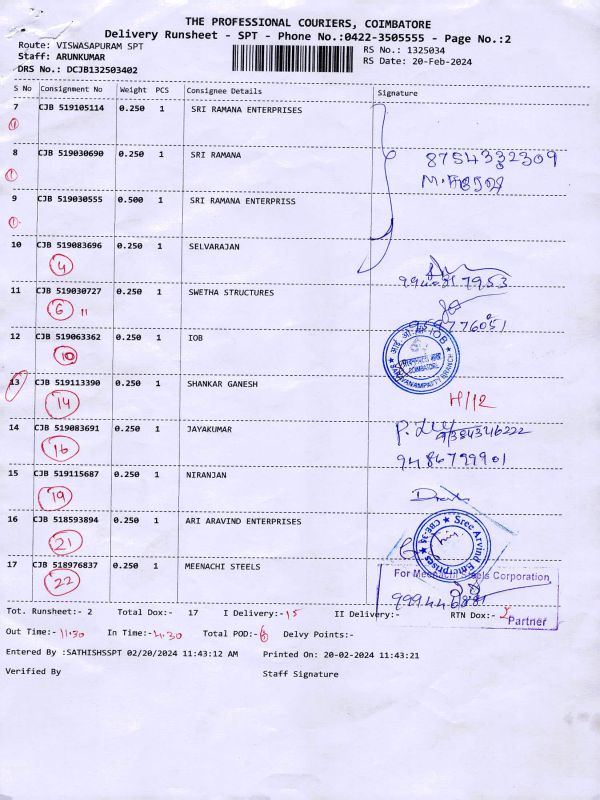 THE PROFESSIONAL COURIERS, COIMBATORE
Delivery Runsheet - SPT - Phone No.:0422-3505555 - Page No.:2
Route: VISWASAPURAM SPT RS No.: 1325034
Staff: ARUNKUMAR RS Date: 20-Feb-2024
DRS No.: DCJB132503402
S No Consignment No Weight PCS Consignee Details Signature
7 CJB 519105114 0.250 1 SRI RAMANA ENTERPRISES
1
8 CJB 519030690 0.250 1 SRI RAMANA 8754332309
1
9 CJB 519030555 0.500 1 SRI RAMANA ENTERPRISS
1
10 CJB 519083696 0.250 1 SELVARAJAN
4
11 CJB 519030727 0.250 1 SWETHA STRUCTURES
6 11
12 CJB 519063362 0.250 1 IOB
10 IOB COIMBATORE SARAVANAMPATTY BRANCH
13 CJB 519113390 0.250 1 SHANKAR GANESH
14 H/12
14 CJB 519083691 0.250 1 JAYAKUMAR
16 9486799901
15 CJB 519115687 0.250 1 NIRANJAN
19
16 CJB 518593894 0.250 1 ARI ARAVIND ENTERPRISES
21 Sree Arvind Enterprises CBE-35
17 CJB 518976837 0.250 1 MEENACHI STEELS
22 For Meenachi Steels Corporation
Tot. Runsheet:- 2 Total Dox:- 17 I Delivery:-15 II Delivery:- RTN Dox:- 2
Partner
Out Time:-11.50 In Time:-4.30 Total POD:- Delvy Points:-
Entered By :SATHISHSSPT 02/20/2024 11:43:12 AM Printed On: 20-02-2024 11:43:21
Verified By Staff Signature